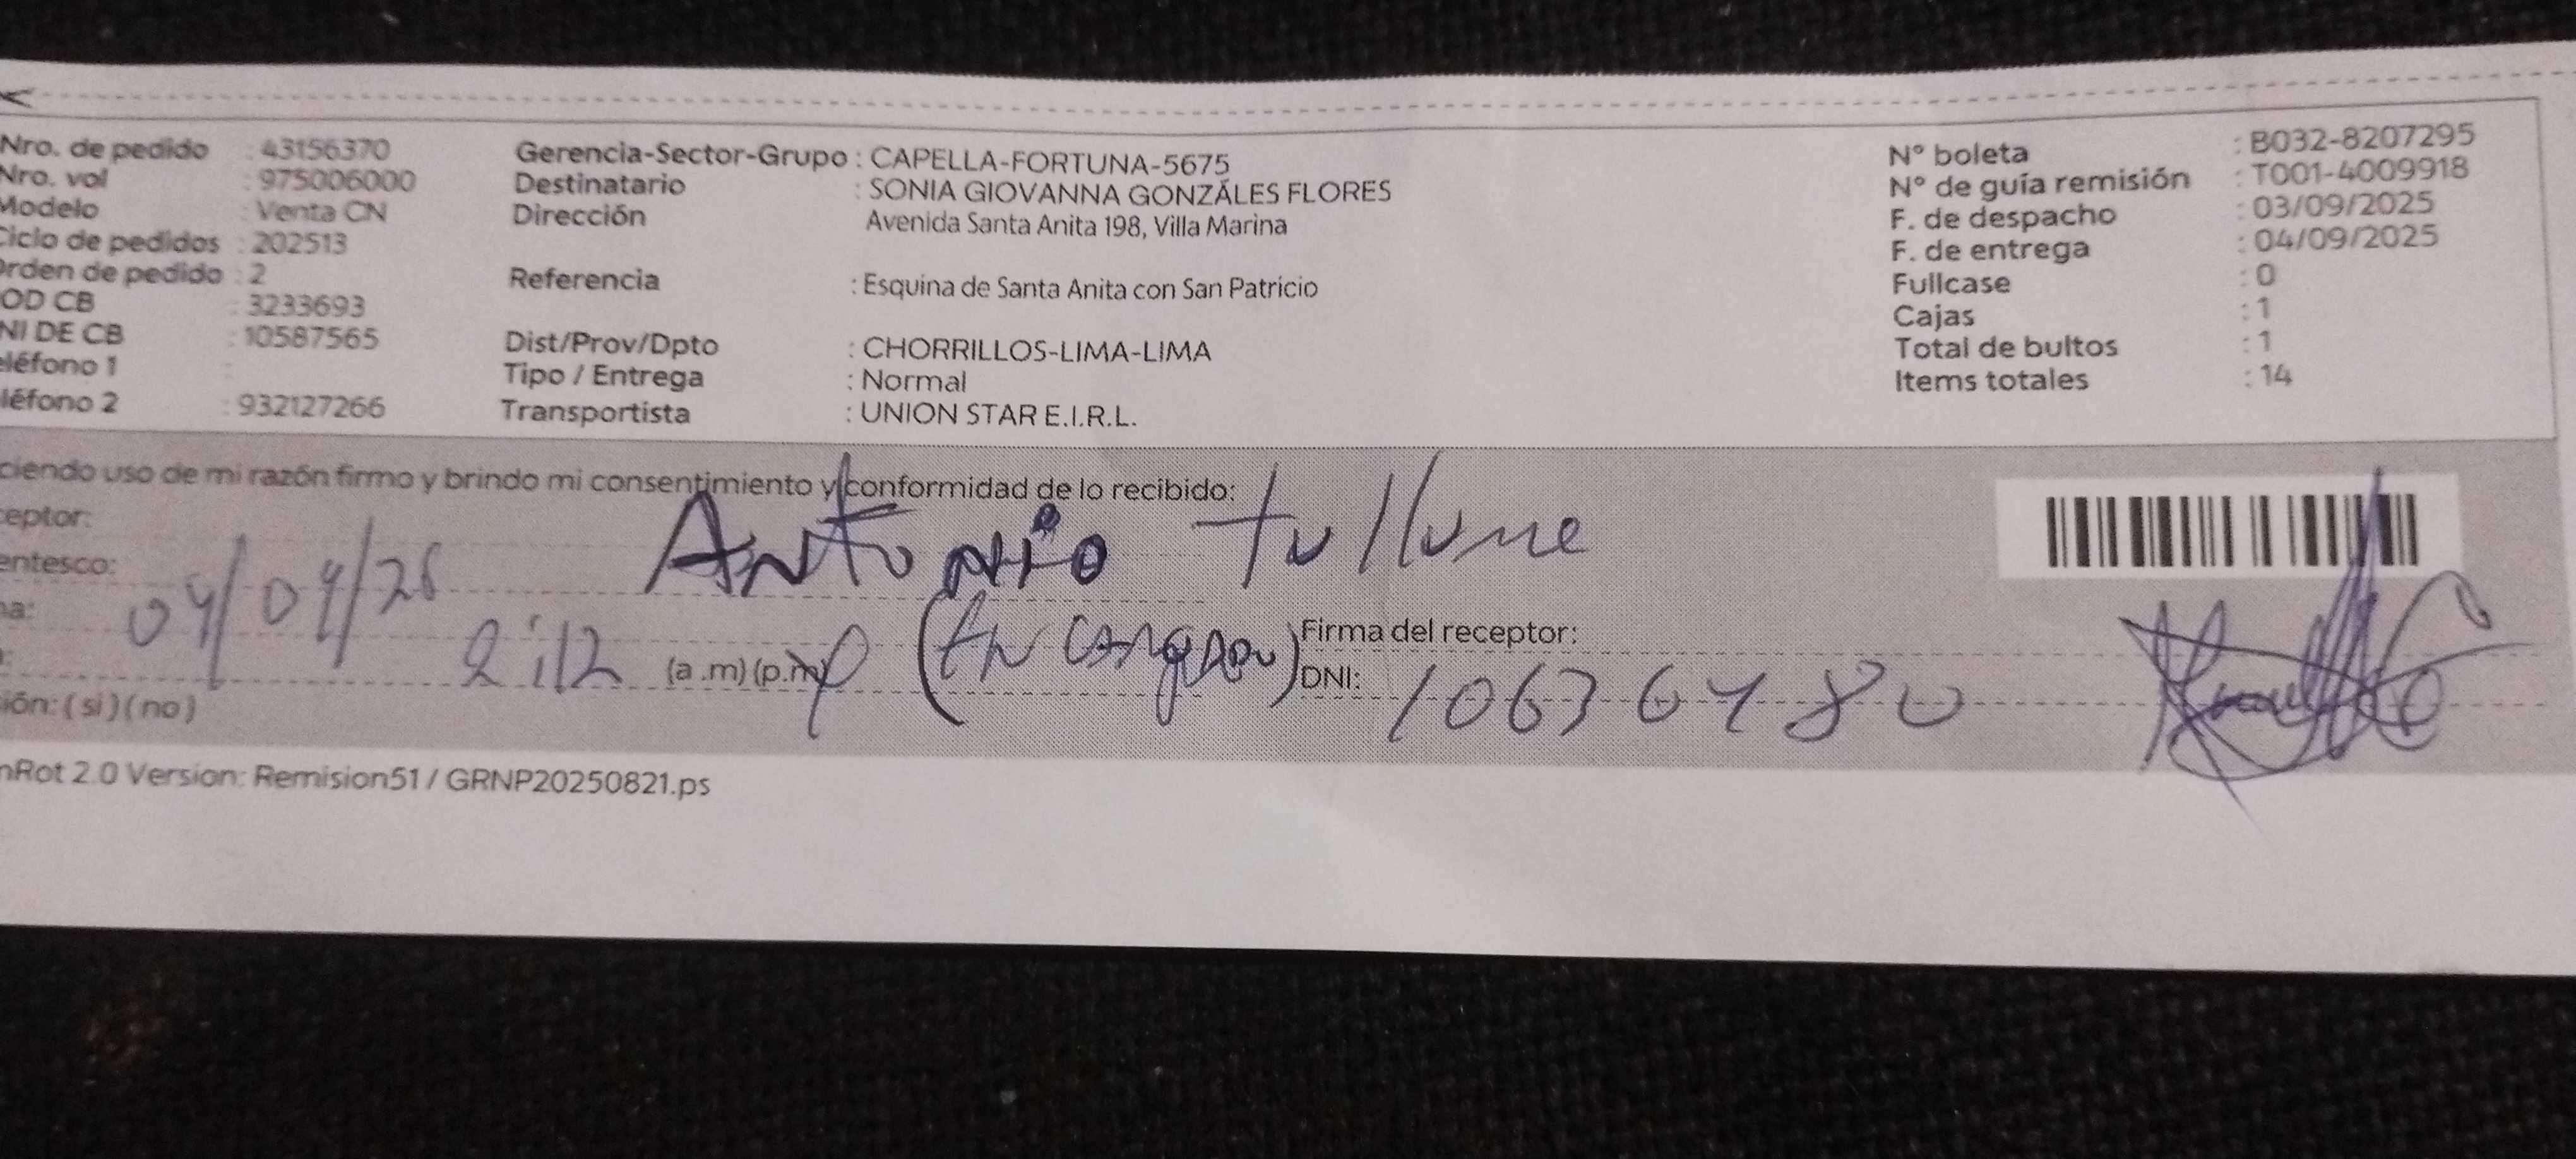 Nro. de pedido : 43156370
Nro. vol : 975006000
Modelo : Venta CN
Ciclo de pedidos : 202513
Orden de pedido : 2
OD CB : 3233693
NI DE CB : 10587565
eléfono 1 :
léfono 2 : 932127266
Gerencia-Sector-Grupo : CAPELLA-FORTUNA-5675
Destinatario : SONIA GIOVANNA GONZÁLES FLORES
Dirección Avenida Santa Anita 198, Villa Marina
Referencia : Esquina de Santa Anita con San Patricio
Dist/Prov/Dpto : CHORRILLOS-LIMA-LIMA
Tipo / Entrega : Normal
Transportista : UNION STAR E.I.R.L.
N° boleta : B032-8207295
N° de guía remisión : T001-4009918
F. de despacho : 03/09/2025
F. de entrega : 04/09/2025
Fullcase : 0
Cajas : 1
Total de bultos : 1
Items totales : 14
ciendo uso de mi razón firmo y brindo mi consentimiento y conformidad de lo recibido:
ceptor: Antonio
entesco:
na: 04/09/25
(a.m) (p.m)
Firma del receptor:
DNI: 10636480
sión: ( si ) ( no )
nRot 2.0 Version: Remision51 / GRNP20250821.ps